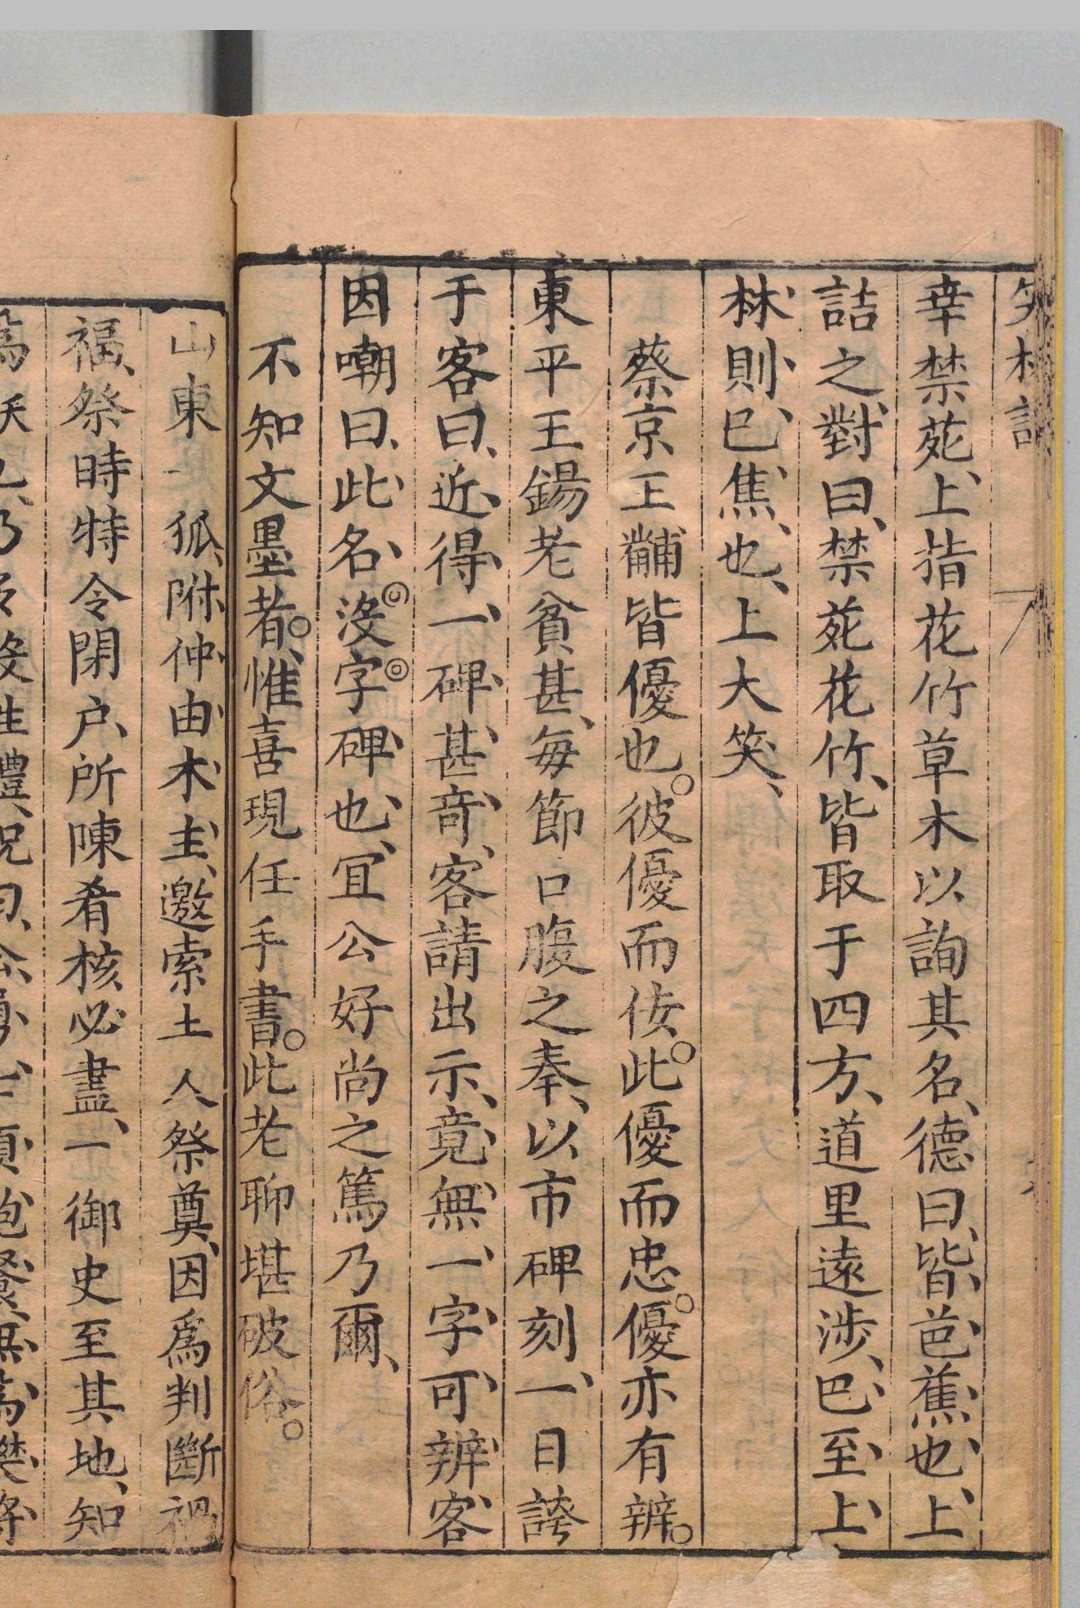 笑林
幸禁苑上指花竹草木以詢其名德曰皆芭蕉也上
詰之對曰禁苑花竹皆取于四方道里遠涉巴至上
林則巳焦也上大笑
蔡京王黼皆優也彼優而佞此優而忠優亦有辨
東平王錫老貧甚每節口腹之奉以市碑刻一日誇
于客曰近得一碑甚奇客請出示竟無一字可辨客
因嘲曰此名沒字碑也宜公好尚之篤乃爾
不知文墨者惟喜現任手書此老聊堪破俗
山東一狐附仲由木主邀索土人祭奠因爲判斷禍
福祭時特令閉户所陳肴核必盡一御史至其地知